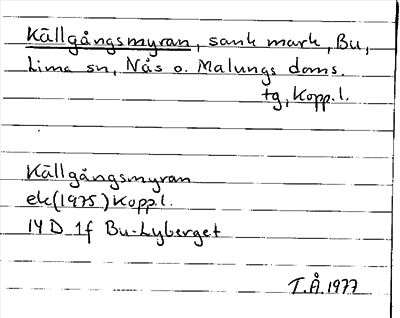 Källgångsmyran, sank mark, Bu,
Lima sn, Nås o. Malungs doms.
tg, Kopp.l.
Källgångsmyran
ek(1975) Kopp.l.
14 D 1f Bu-Lyberget
T.Å.1977